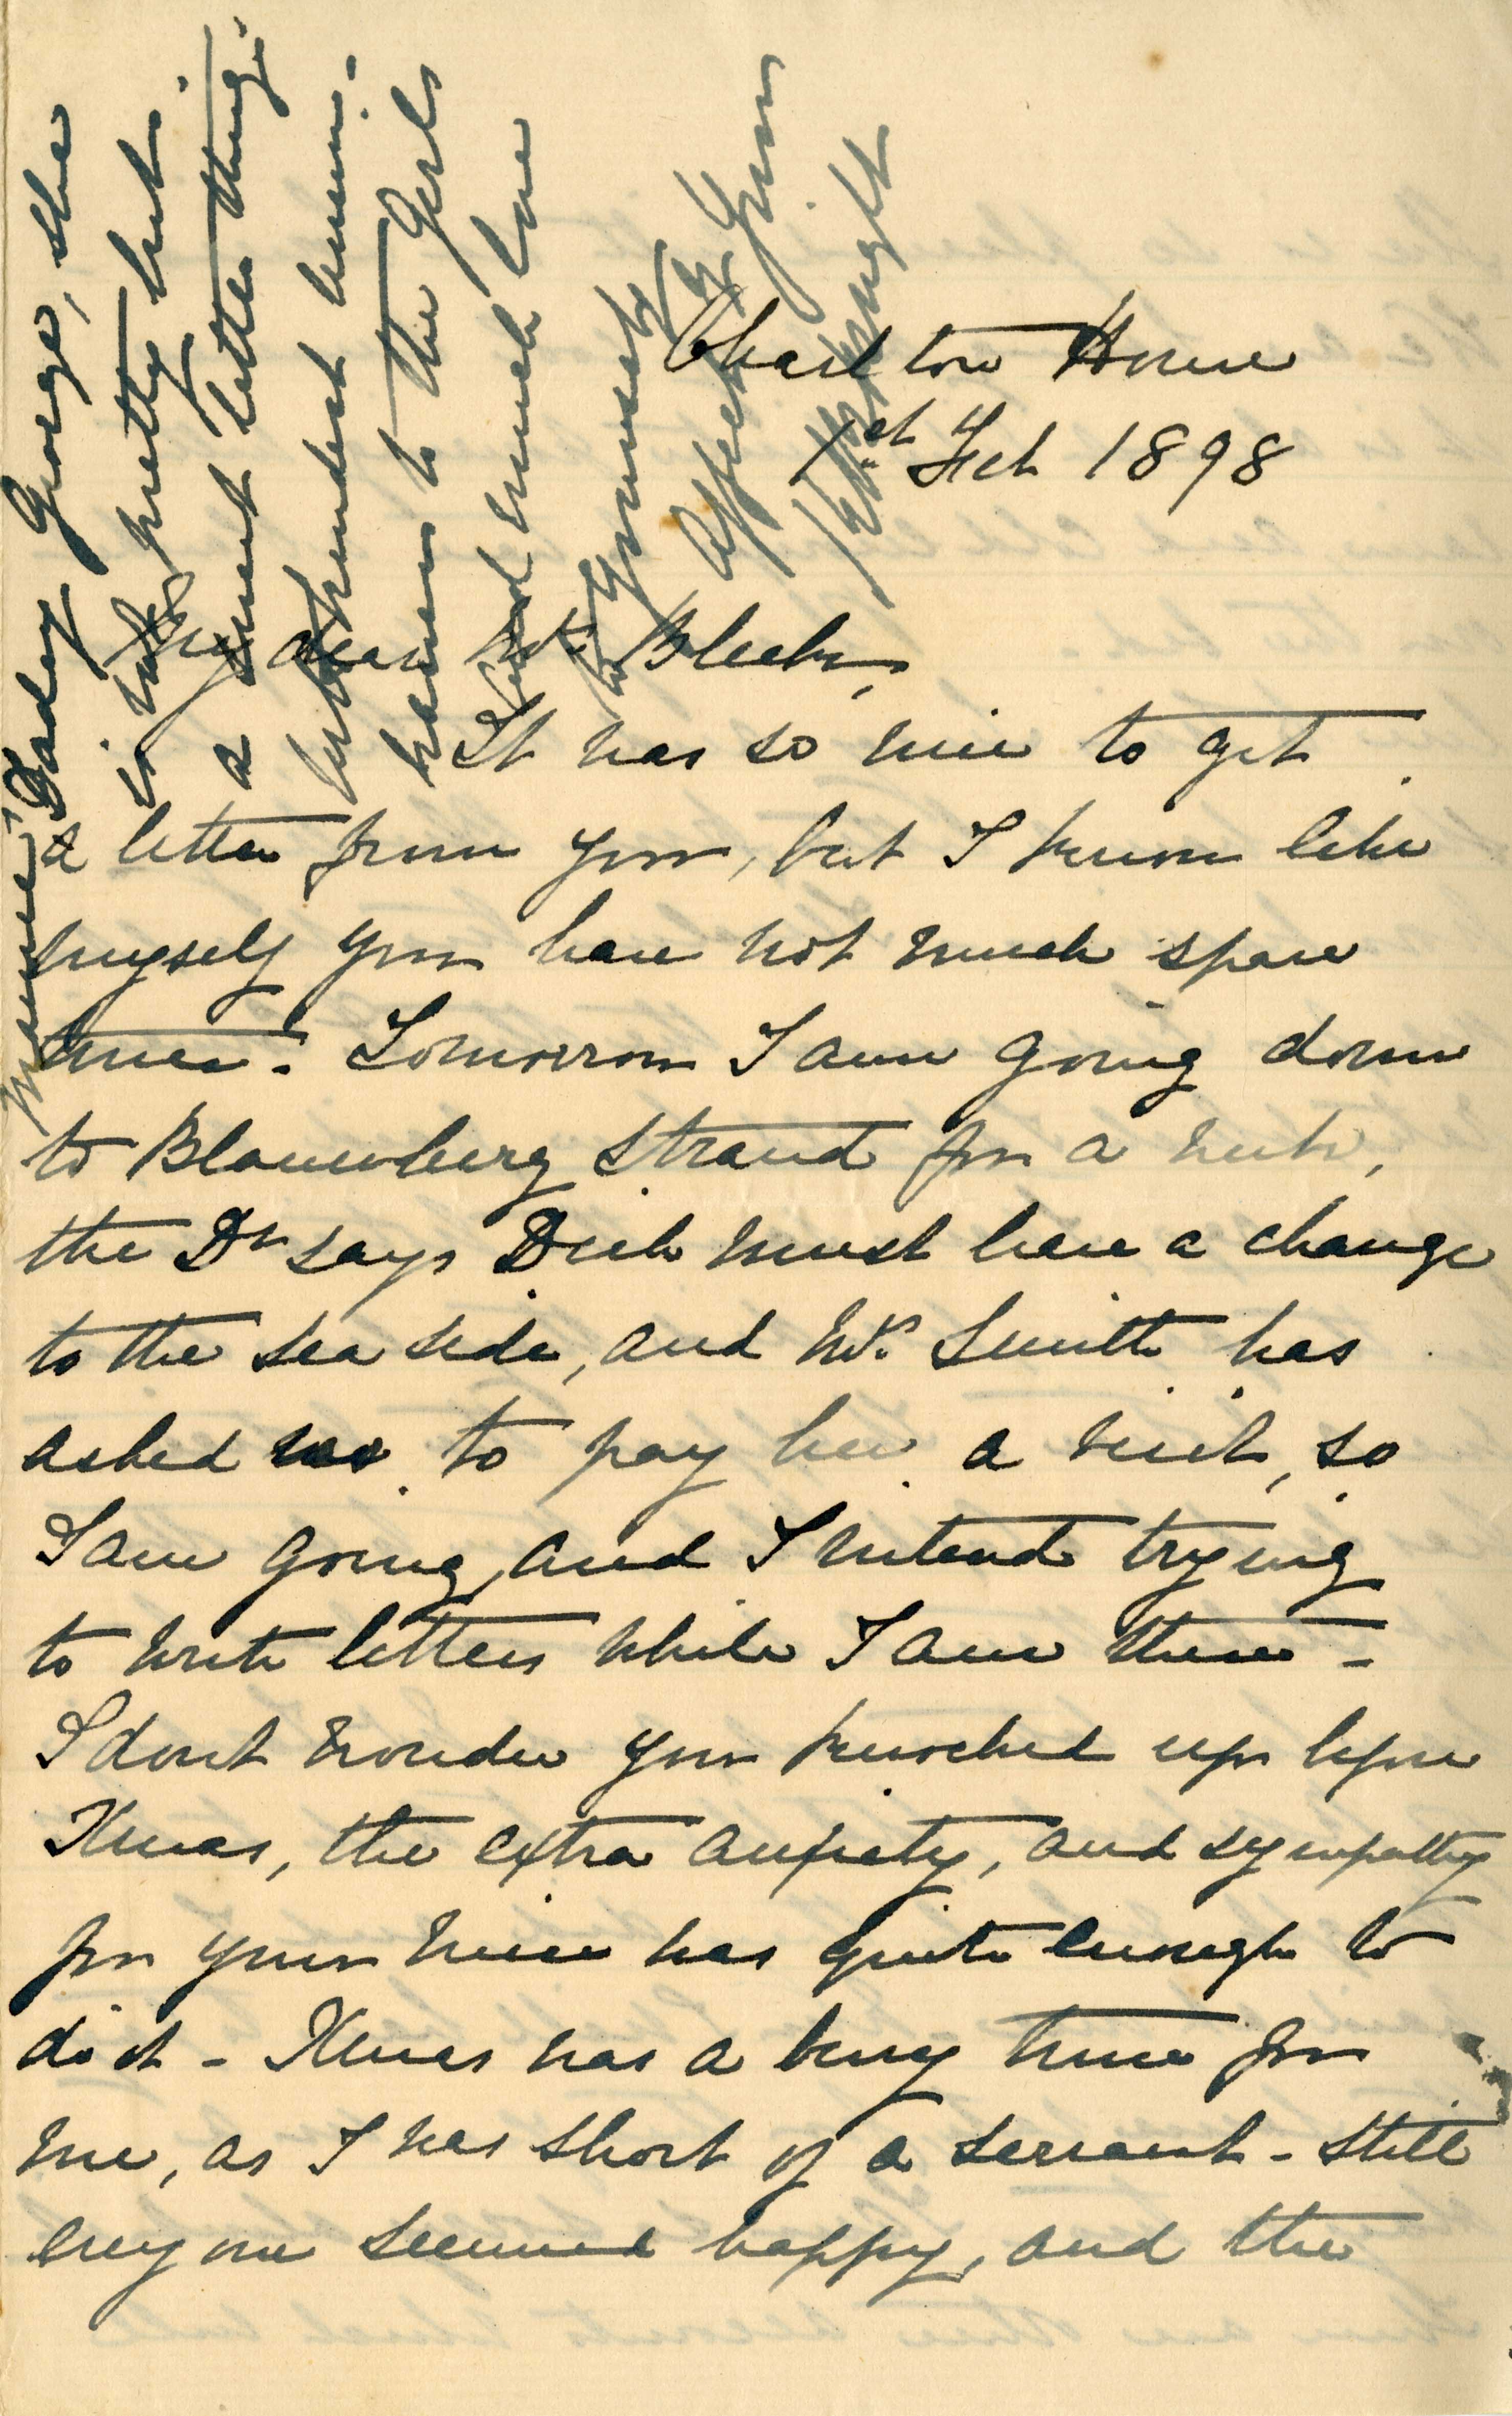 Charlton House
1st Feb 1898
My dear Mrs Bleek,
It was so nice to get
a letter from you, but I know like
myself you have not much spare
time. Tomorrow I am going down
to Blaauwberg Strand for a week,
the Dr says Dick must have a change
to the sea side, and Mrs Smith has
asked us to pay her a visit, so
I am going, and I intend trying
to write letters while I am there -
I dont wonder you knocked up before
Xmas, the extra anxiety, and sympathy
for your niece was quite enough to
do it - Xmas was a busy time for
me, as I was short of a servant - still
every one seemed happy, and the
George, she
is not pretty but
a sweet little thing
kindest
to the Girls
and much love
to yourself
Affectly Yours